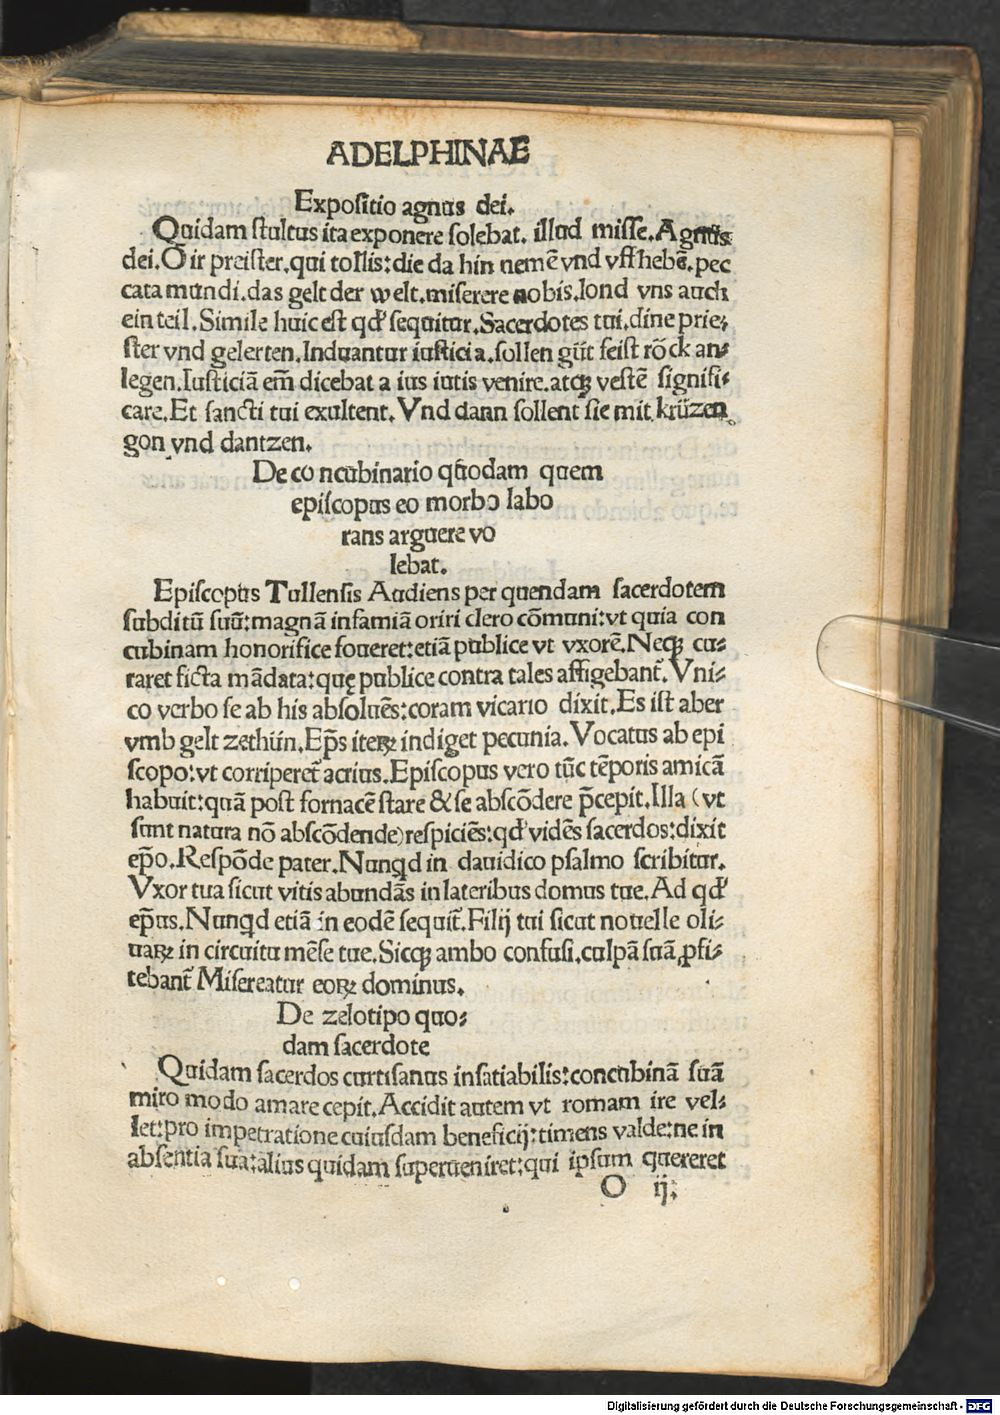 ADELPHINAE
Expoſitio agnus dei.
Quidam ſtultus ita exponere ſolebat. illud miſſe. Agnus
dei. O ir preiſter. qui tollis: die da hin nemē vnd vff hebē. pec
cata mundi. das gelt der welt. miſerere nobis. lond vns auch
ein teil. Simile huic eſt qd' ſequitur. Sacerdotes tui. dine prie⸗
ſter vnd gelerten. Induantur iuſticia. ſollen güt feiſt rȫck an⸗
legen. Iuſticiā em̄ dicebat a ius iutis venire. atqꝫ veſtē ſignifi⸗
care. Et ſancti tui exultent. Vnd dann ſollent ſie mit krüzen
gon vnd dantzen.
De concubinario quodam quem
epiſcopus eo morbo labo
rans arguere vo
lebat.
Epiſcopus Tullenſis Audiens per quendam ſacerdotem
ſubditū ſuū: magnā infamiā oriri clero cōmuni: vt quia con
cubinam honorifice foueret: etiā publice vt vxorē. Neqꝫ cu⸗
raret ficta mādata: quę publice contra tales affigebant̄. Vni⸗
co verbo ſe ab his abſoluēs: coram vicario dixit. Es iſt aber
vmb gelt zethün. Ep̄s iteꝝ indiget pecunia. Vocatus ab epi
ſcopo: vt corriperet̄ acrius. Epiſcopus vero tūc tēporis amicā
habuit: quā poſt fornacē ſtare & ſe abſcōdere p̄cepit. Illa (vt
ſunt natura nō abſcōdende) reſpiciēs: qd' vidēs ſacerdos: dixit
ep̄o. Reſpōde pater. Nunqd in dauidico pſalmo ſcribitur.
Vxor tua ſicut vitis abundās in lateribus domus tue. Ad qd'
ep̄us. Nunqd etiā in eodē ſequit̄. Filij tui ſicut nouelle oli⸗
uaꝝ in circuitu mēſe tue. Sicqꝫ ambo confuſi. culpā ſuā ꝓfi⸗
tebant̄ Miſereatur eoꝝ dominus.
De zelotipo quo⸗
dam ſacerdote
Quidam ſacerdos curtiſanus inſatiabilis: concubinā ſuā
miro modo amare cepit. Accidit autem vt romam ire vel⸗
let: pro impetratione cuiuſdam beneficij: timens valde: ne in
abſentia ſua: alius quidam ſuperueniret: qui ipſum quereret
O ij:
Digitalisierung gefördert durch die Deutsche Forschungsgemeinschaft - DFG